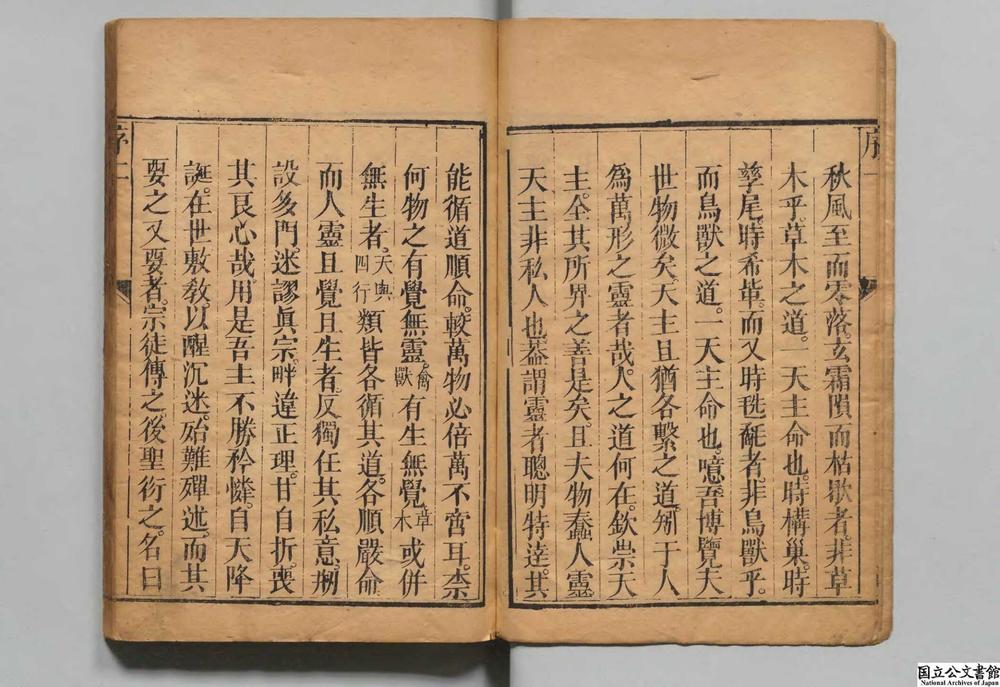 序一
秋風至而零落玄霜隕而枯歇者非草
木乎。草木之道。一天主命也。時構巢。時
孳尾。時希革。而又時毨氄者。非鳥獸乎。
而鳥獸之道。一天主命也。噫吾博覽夫
世物微矣。天主且猶各繫之道。矧于人
爲萬形之靈者哉。人之道何在。欽崇天
主。全其所畀之善是矣。且夫物蠢人靈
天主非私人也。葢謂靈者聰明特達。其
能循道順命。較萬物必倍萬不啻耳。柰
何物之有覺無靈。禽獸有生無覺草木或併
無生者。天輿四行類皆各循其道。各順嚴命
而人靈且覺且生者。反獨任其私意。剏
設多門。迷謬眞宗。畔違正理。甘自折喪
其良心哉。用是吾主不勝矜憐。自天降
誕。在世敷敎。以醒沉迷。殆難殫述。而其
要之又要者。宗徒傳之。後聖衍之。名曰
序二
国立公文書館
National Archives of Japan